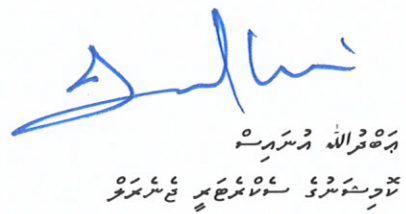 ޢަބްދުﷲ އުނައިސް
ކޮމިޝަނުގެ ސެކްރެޓަރީ ޖެނެރަލް